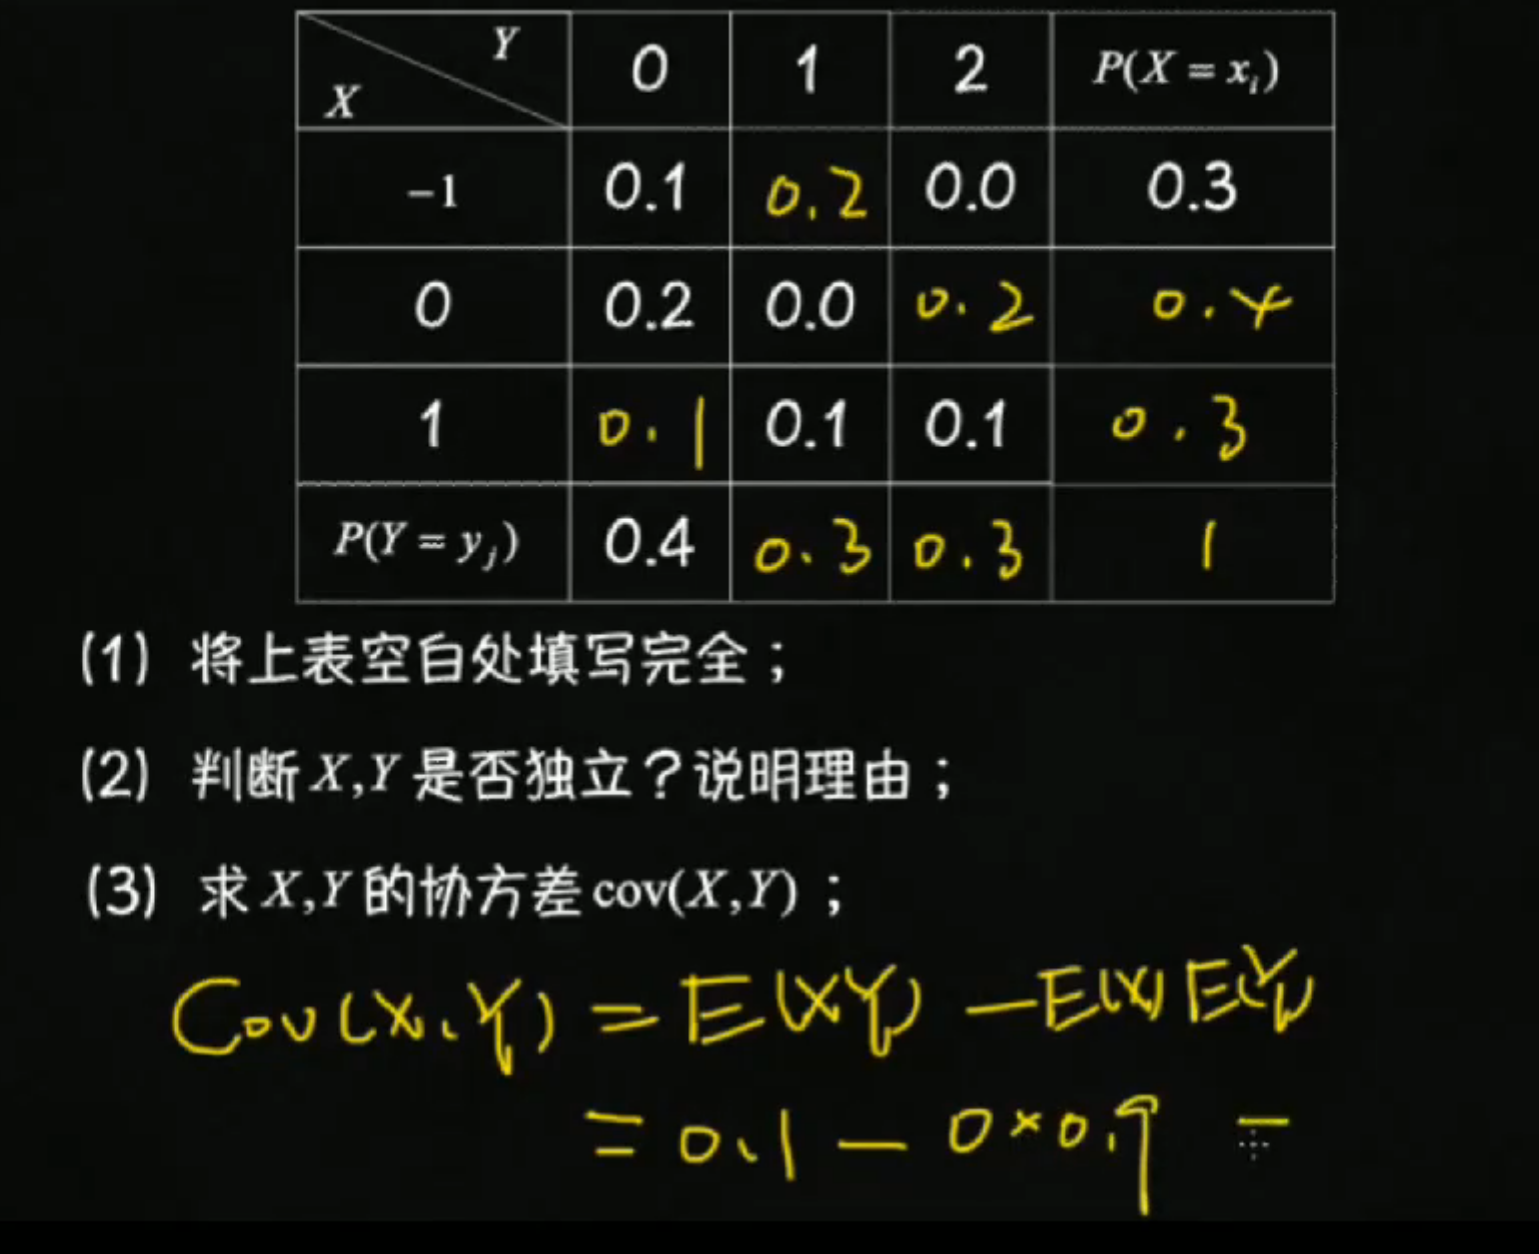 Y 0 1 2 P(X = xᵢ)
X
−1 0.1 0.2 0.0 0.3
0 0.2 0.0 0.2 0.4
1 0.1 0.1 0.1 0.3
P(Y = yⱼ) 0.4 0.3 0.3 1
(1) 将上表空白处填写完全；
(2) 判断 X,Y 是否独立？说明理由；
(3) 求 X,Y 的协方差 cov(X,Y)；
Cov(X,Y) = E(XY) − E(X)E(Y)
= 0.1 − 0×0.9 =